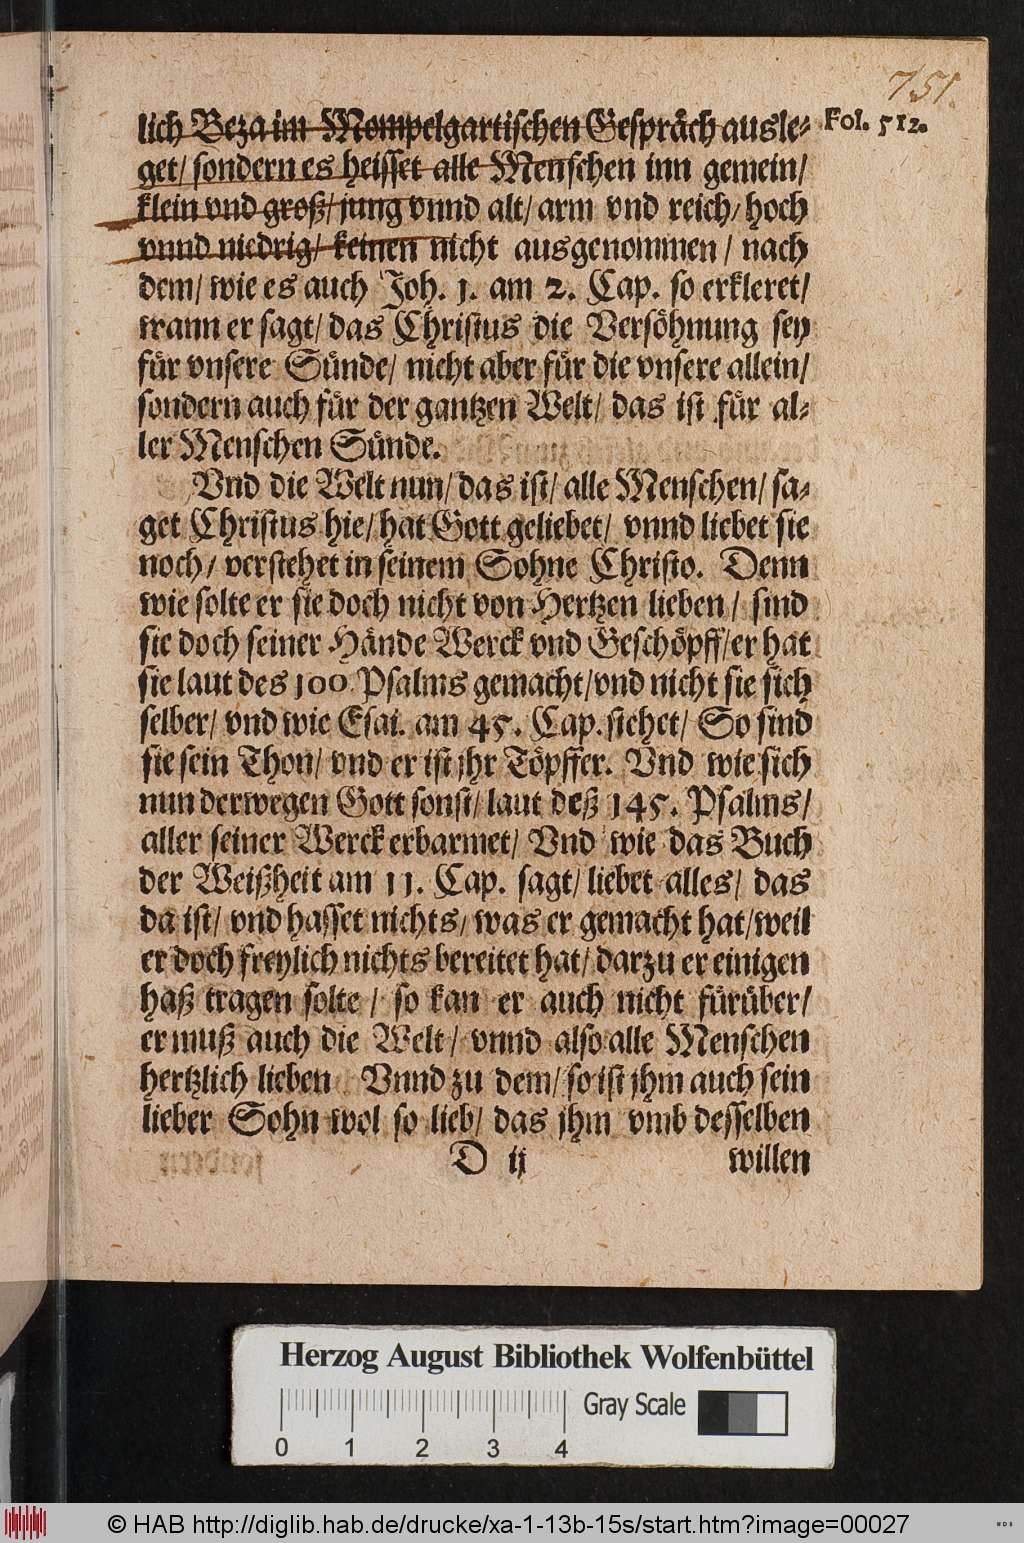 751.
lich Beza im Mompelgartischen Gespräch ausle⸗ Fol. 512.
get/ sondern es heisset alle Menschen inn gemein/
klein vnd groß/ jung vnnd alt/ arm vnd reich/ hoch
vnnd niedrig/ keinen nicht ausgenommen/ nach
dem/ wie es auch Joh. 1. am 2. Cap. so erkleret/
wann er sagt/ das Christus die Versöhnung sey
für vnsere Sünde/ nicht aber für die vnsere allein/
sondern auch für der gantzen Welt/ das ist für al⸗
ler Menschen Sünde.
Vnd die Welt nun/ das ist/ alle Menschen/ sa⸗
get Christus hie/ hat Gott geliebet/ vnnd liebet sie
noch/ verstehet in seinem Sohne Christo. Denn
wie solte er sie doch nicht von Hertzen lieben/ sind
sie doch seiner Hände Werck vnd Geschöpff/ er hat
sie laut des 100. Psalms gemacht/ vnd nicht sie sich
selber/ vnd wie Esai. am 45. Cap. stehet/ So sind
sie sein Thon/ vnd er ist jhr Töpffer. Vnd wie sich
nun derwegen Gott sonst/ laut deß 145. Psalms/
aller seiner Werck erbarmet/ Vnd wie das Buch
der Weißheit am 11. Cap. sagt/ liebet alles/ das
da ist/ vnd hasset nichts/ was er gemacht hat/ weil
er doch freylich nichts bereitet hat/ darzu er einigen
haß tragen solte/ so kan er auch nicht fürüber/
er muß auch die Welt/ vnnd also alle Menschen
hertzlich lieben Vnnd zu dem/ so ist jhm auch sein
lieber Sohn wol so lieb/ das jhm vmb desselben
D ij willen
Herzog August Bibliothek Wolfenbüttel
Gray Scale
0 1 2 3 4
© HAB http://diglib.hab.de/drucke/xa-1-13b-15s/start.htm?image=00027